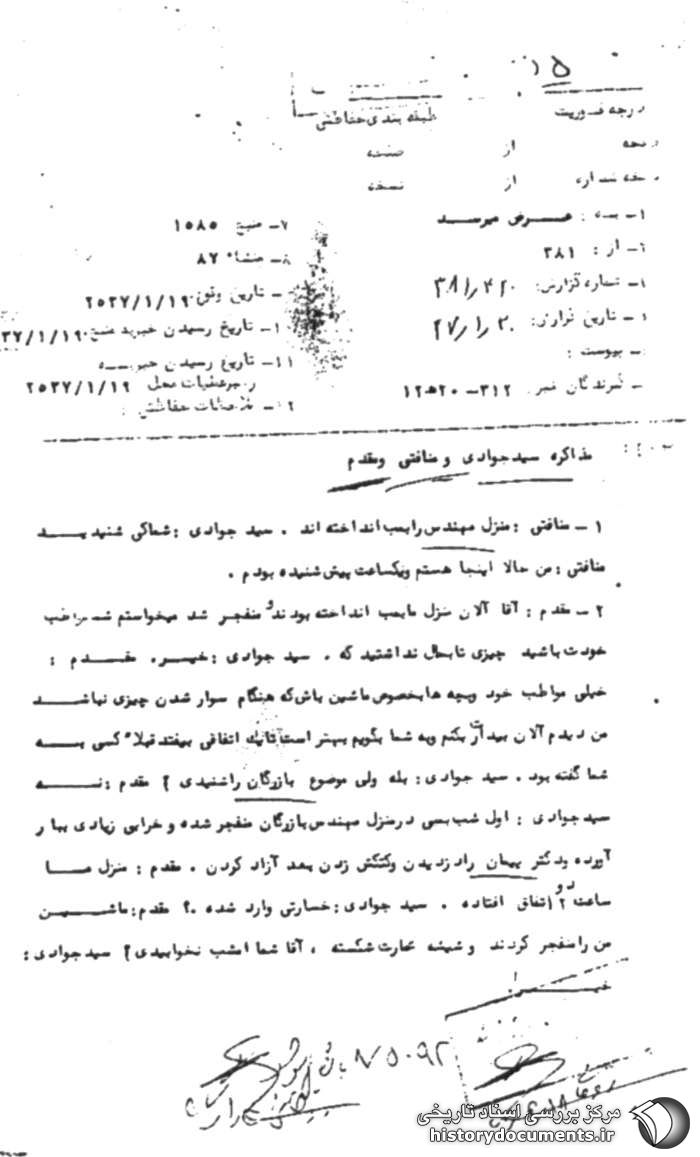 ۵
درجه فوریت
طبقه بندی حفاظتی
صفحه از صفحه
نسخه شماره از نسخه
۱- به : عرض میرسد
۷- منبع ۱۵۸۵
۲- از : ۳۸۱
۸- منشاء ۸۷
شماره گزارش: ۳۸۱٫۴۲۰
تاریخ وقوع: ۲۵۳۷/۱/۱۹
تاریخ گزارش: ۳۷٫۱٫۲۰
تاریخ رسیدن خبر به منبع ۳۷/۱/۱۹
پیوست :
۱۱- تاریخ رسیدن خبر به
رهبر عملیات محل ۲۵۳۷/۱/۱۹
گیرندگان خبر ۳۱۲-۱۲۵۲۰
۱۲- ملاحظات حفاظتی :
مذاکره سید جوادی و منافتی ومقدم
۱- منافتی : منزل مهندس رابمب انداخته اند . سید جوادی : شماکی شنیدید
منافتی : من حالا اینجا هستم ویکساعت پیش شنیده بودم .
۲- مقدم : آقا آلان منزل مابمب انداخته بودند و منفجر شد میخواستم شما مواظب
خودت باشید چیزی تابحال نداشتید که . سید جوادی : خیر. مقدم :
خیلی مواظب خود وبچه ها بخصوص ماشین باش که هنگام سوار شدن چیزی نباشد
من دیدم آلان بیدارت بکنم وبه شما بگویم بهتر است تایک اتفاقی بیفتد قبلا" کسی به
شما گفته بود . سید جوادی : بله ولی موضوع بازرگان راشنیدی ؟ مقدم : نه
سید جوادی : اول شب بمبی درمنزل مهندس بازرگان منفجر شده و خرابی زیادی ببار
آورده ودکتر پیمان رادزدیدن وکتکش زدن بعد آزاد کردن . مقدم : منزل ما
ساعت دو ۲ اتفاق افتاده . سید جوادی : خسارتی وارد شده ؟ مقدم : ماشین
من را منفجر کردند و شیشه عمارت شکسته ، آقا شما امشب نخوابیدی ؟ سید جوادی :
خیر .
۷۵۰۹۲
مرکز بررسی اسناد تاریخی
historydocuments.ir